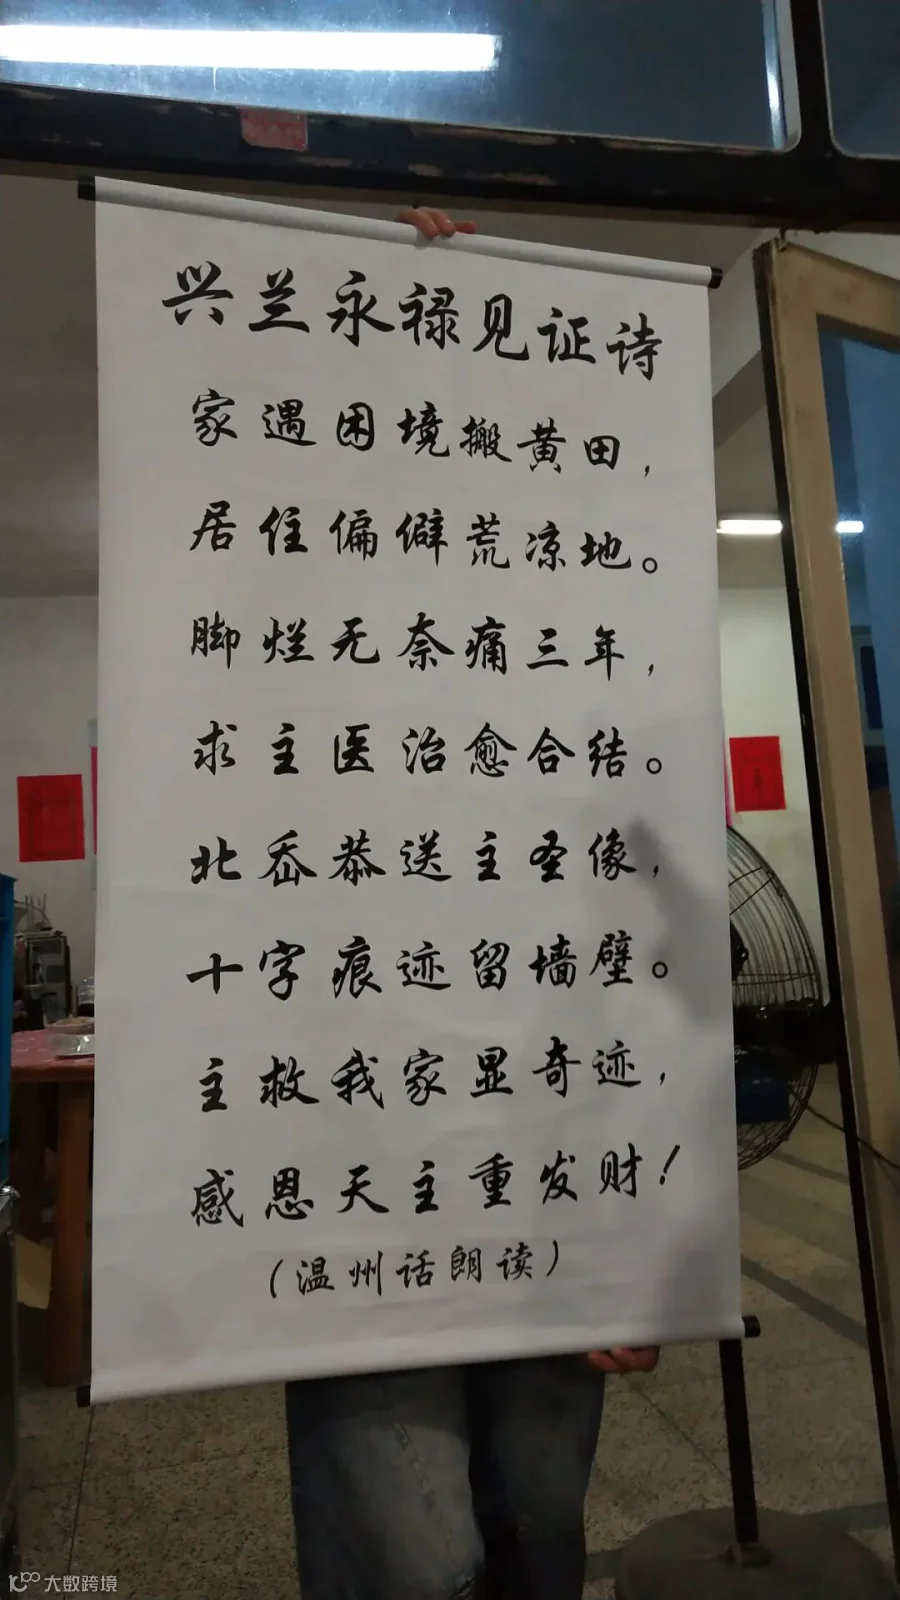 兴兰永禄见证诗
家遇困境搬黄田，
居住偏僻荒凉地。
脚烂无奈痛三年，
求主医治愈合结。
北岙恭送主圣像，
十字痕迹留墙壁。
主救我家显奇迹，
感恩天主重发财！
（温州话朗读）
大数跨境